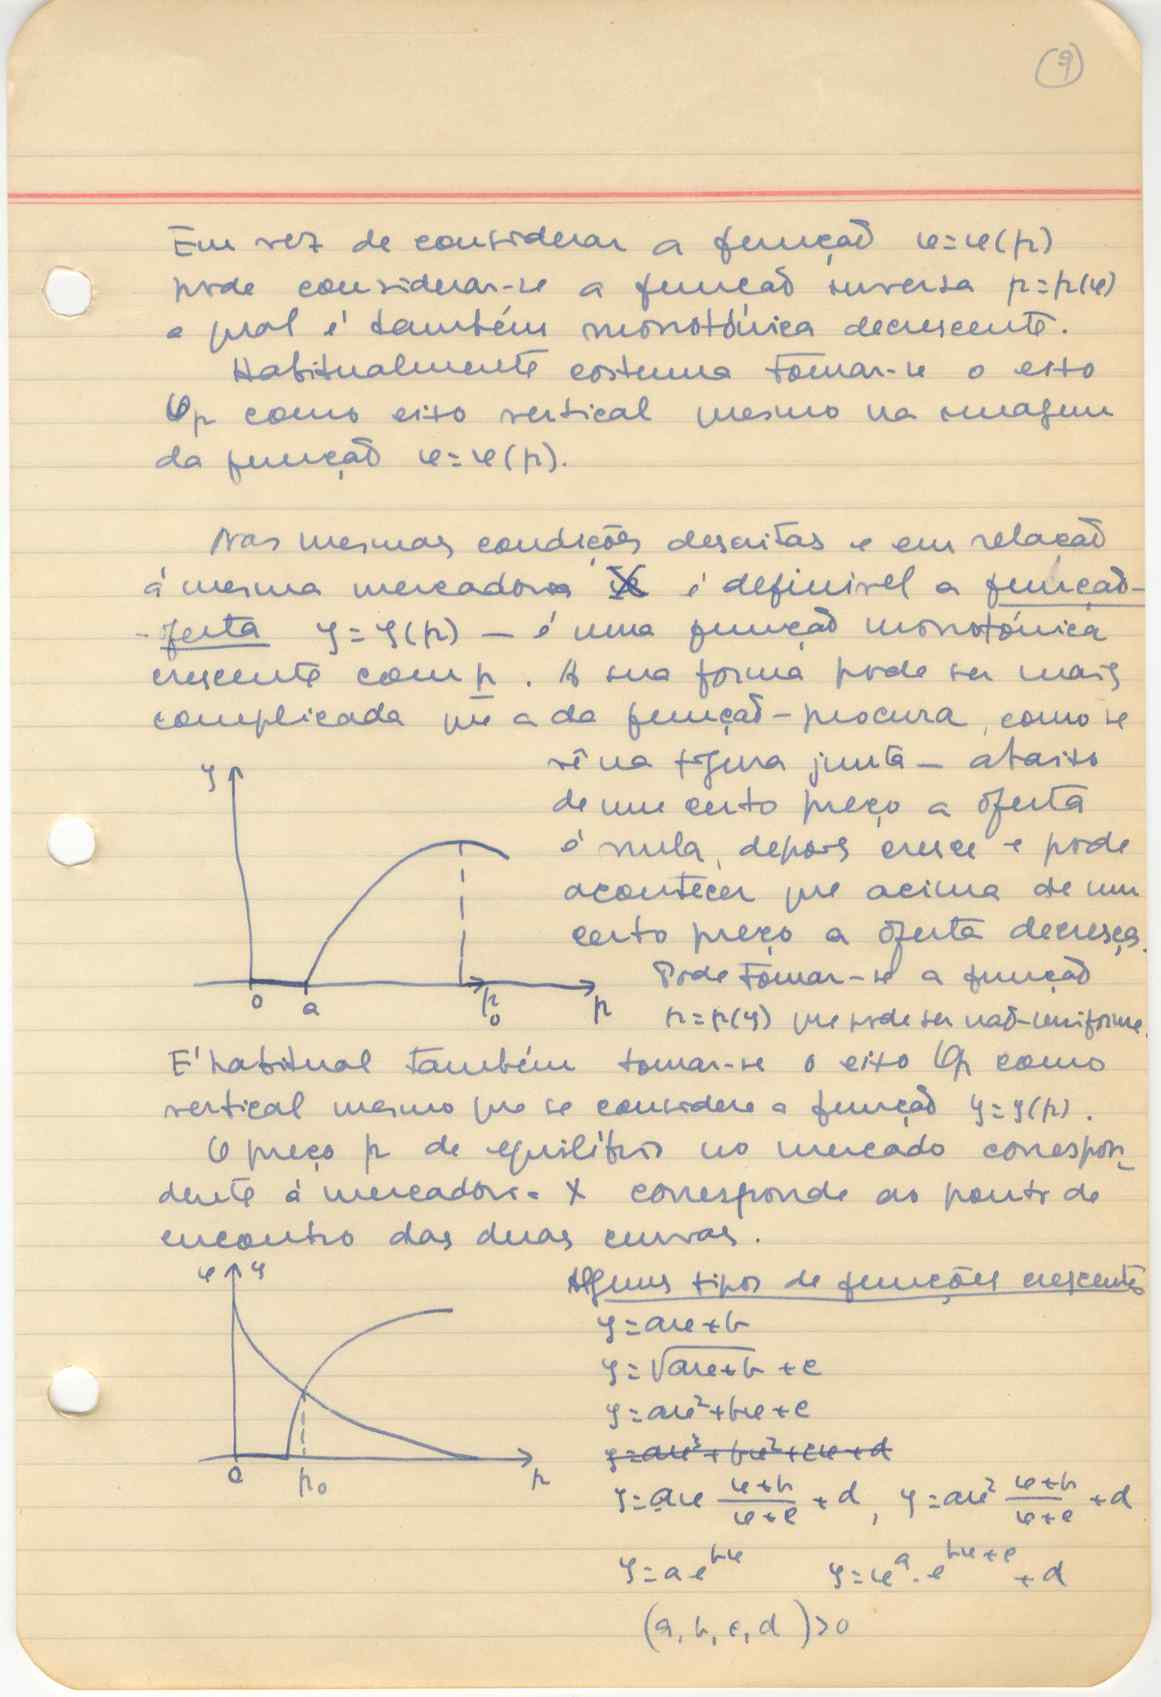 (9)
Em vez de considerar a função x=x(p)
pode considerar-se a função inversa p=p(x)
a qual é também monotónica decrescente.
Habitualmente costuma tomar-se o eixo
Op como eixo vertical mesmo na imagem
da função x=x(p).
Nas mesmas condições descritas e em relação
á mesma mercadoria X é definivel a função-
-oferta y=y(p) — é uma função monotónica
crescente com p. A sua forma pode ser mais
complicada que a da função-procura, como se
vê na figura junta — abaixo
de um certo preço a oferta
é nula, depois cresce e pode
acontecer que acima de um
certo preço a oferta decresça.
Pode tomar-se a função
p=p(y) que pode ser não-uniforme.
y
0 a p0 p
É habitual também tomar-se o eixo Op como
vertical mesmo que se considere a função y=y(p).
O preço p de equilíbrio no mercado correspon-
dente á mercadoria X corresponde ao ponto de
encontro das duas curvas.
x y
0 p0 p
Alguns tipos de funções crescentes
y=ax+b
y=√ax+b +c
y=ax²+bx+c
y=ax³+bx²+cx+d
y=ax (x+b)/(x+c) +d, y=ax² (x+b)/(x+c) +d
y=a e^bx y=x^a.e^bx+c +d
(a, b, c, d)>0